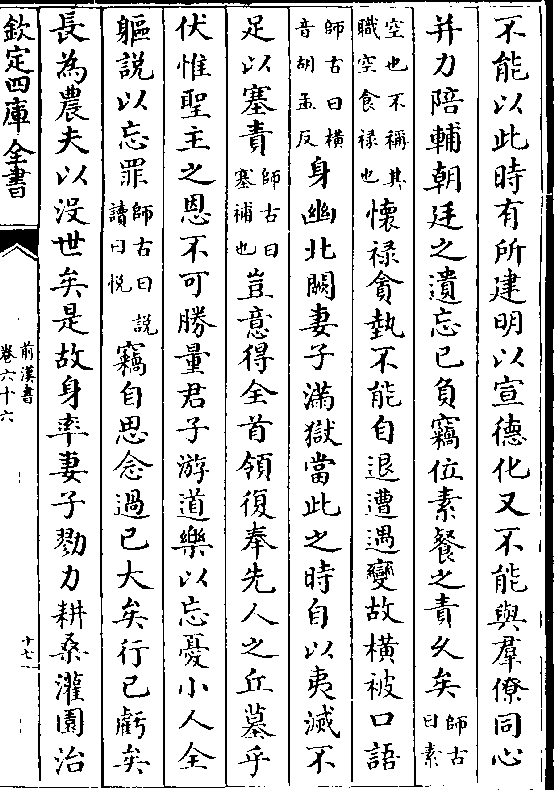 不能以此時有所建明以宣德化又不能與羣僚同心
并力陪輔朝廷之遺忘已負竊位素餐之責乆矣師古曰素
空也不稱其職空食禄也懷禄貪埶不能自退遭遇變故橫被口語
師古曰橫音胡孟反身幽北闕妻子滿獄當此之時自以夷滅不
足以塞責師古曰塞補也豈意得全首領復奉先人之丘墓乎
伏惟聖主之恩不可勝量君子游道樂以忘憂小人全
軀說以忘罪師古曰說讀曰悅竊自思念過已大矣行已虧矣
長為農夫以沒世矣是故身率妻子勠力耕桑灌園治
欽定四庫全書
前漢書
卷六十六
十七